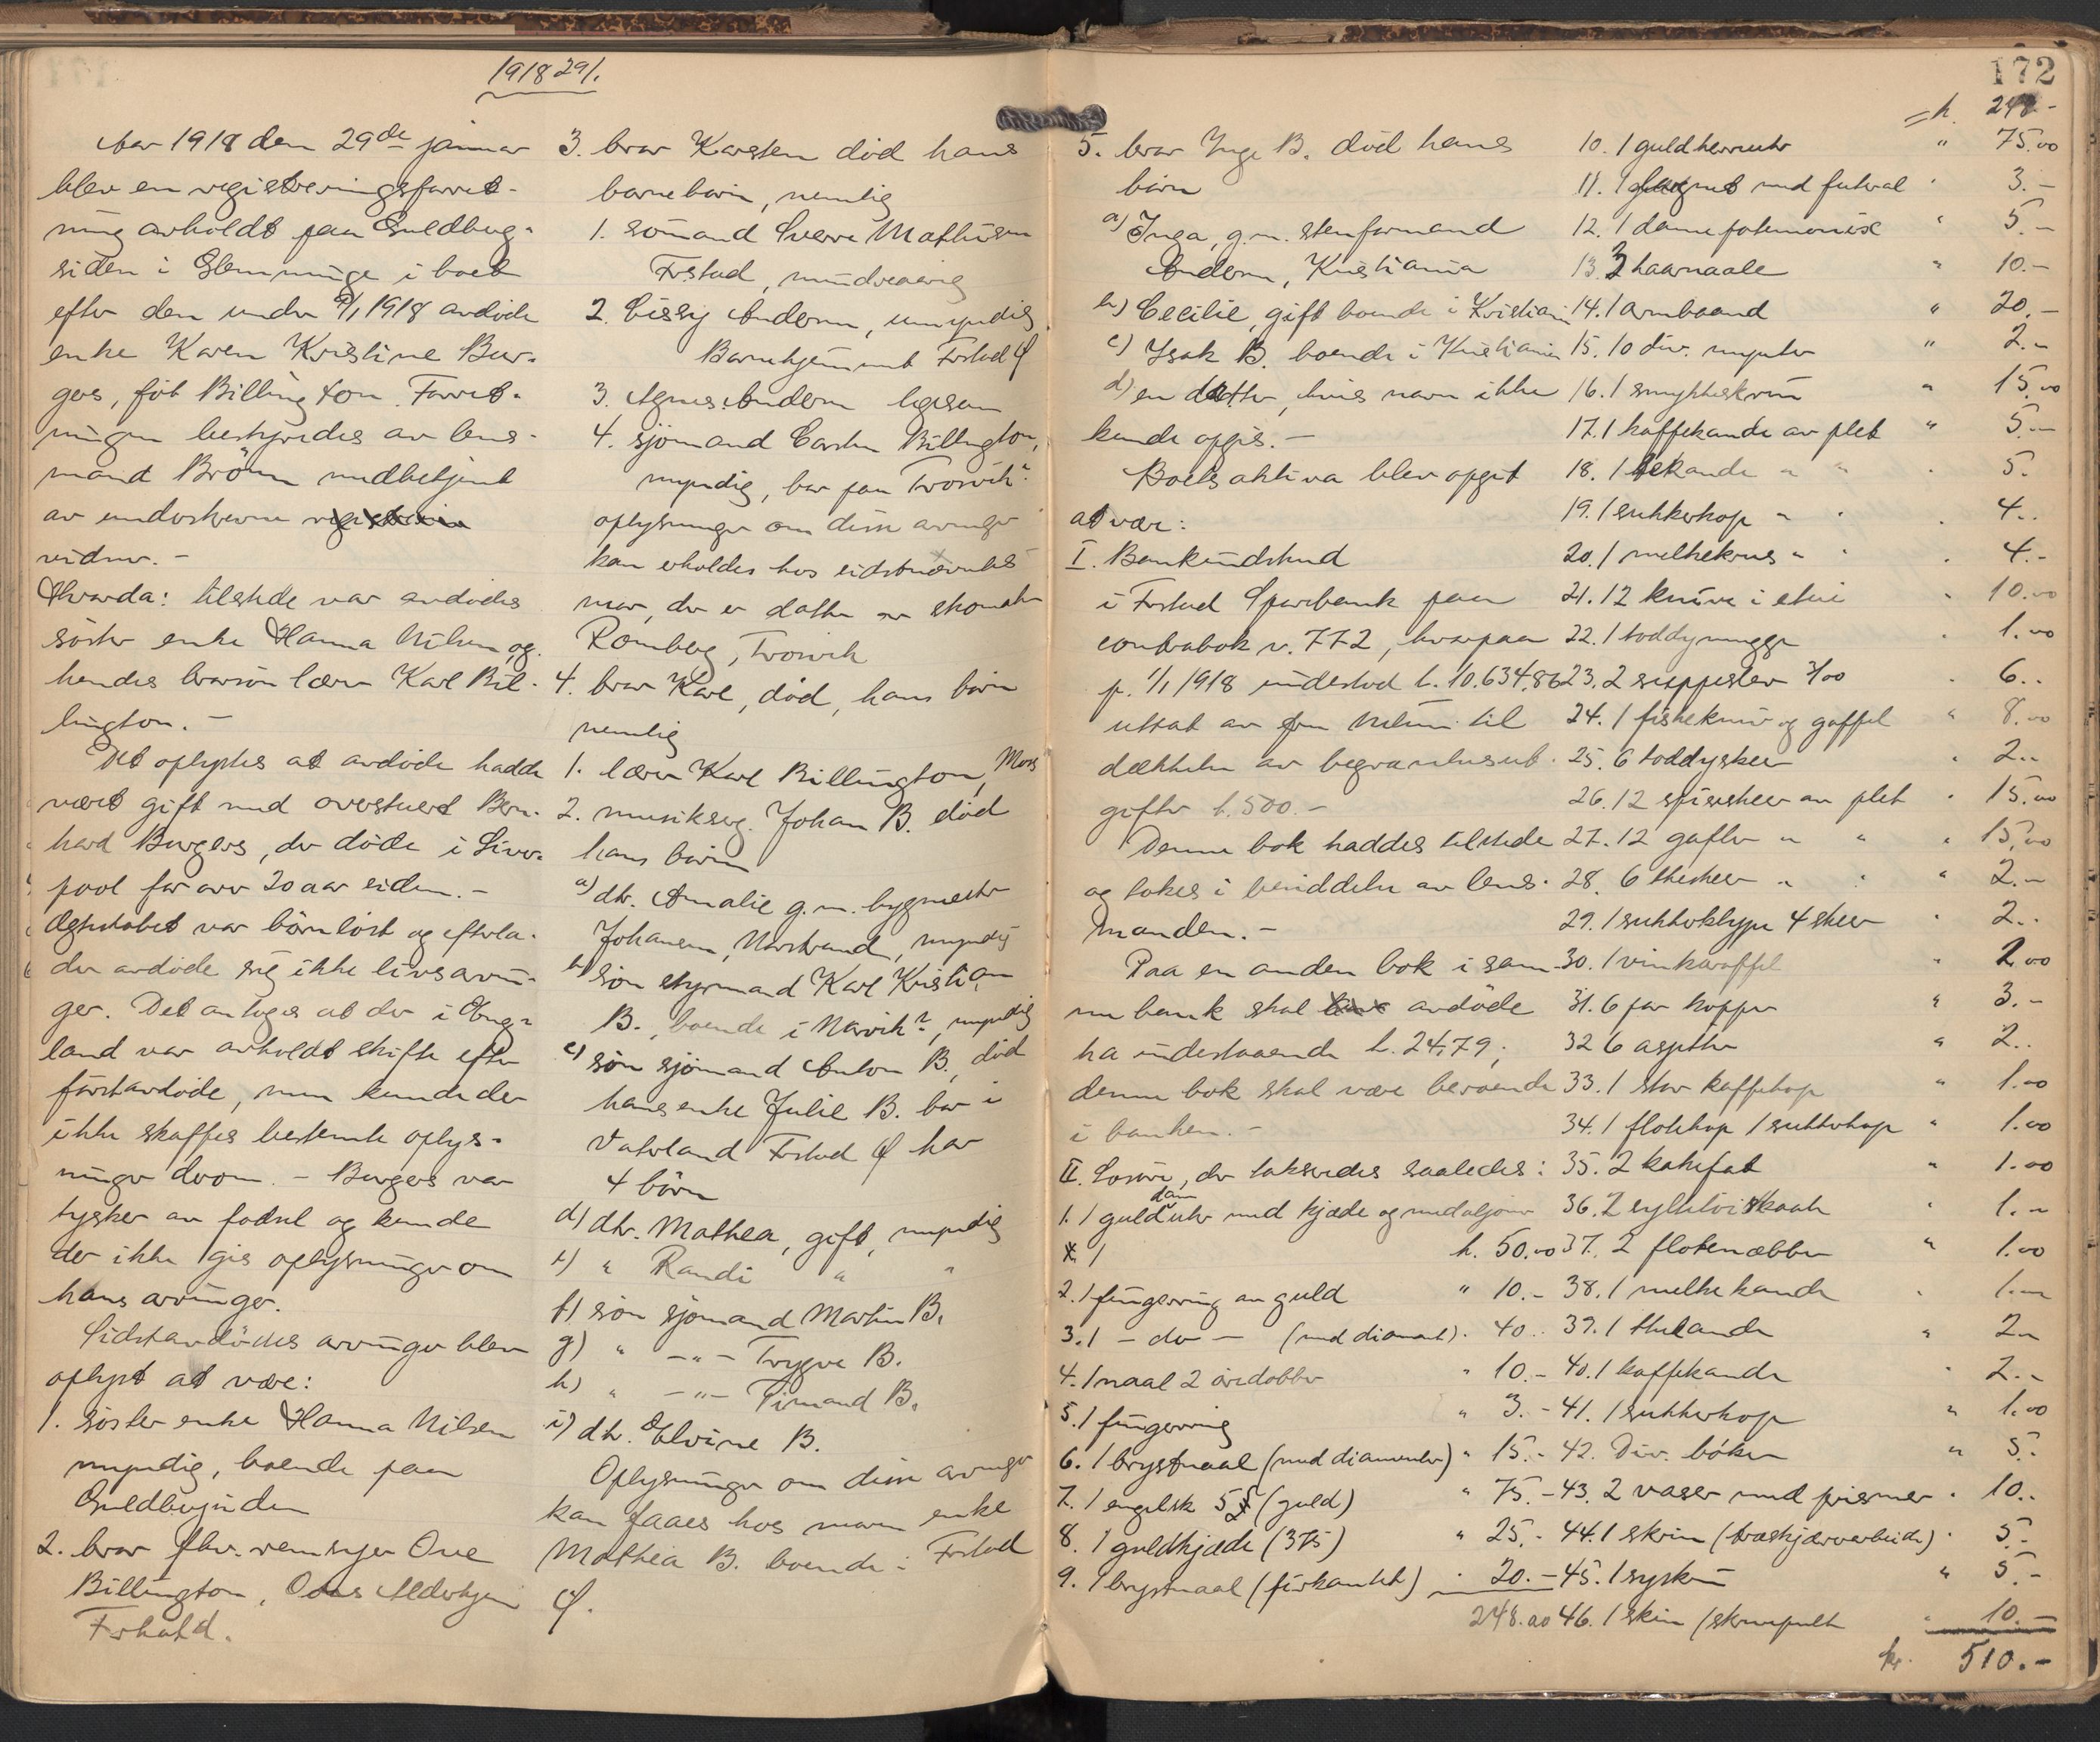 1918 29/1.
Aar 1918 den 29de januar
blev en registreringsforret-
ning avholdt paa Guldberg-
siden i Glemminge i boet
efter den under 9/1 1918 avdøde
enke Karen Kristine Bur-
gers, født Billington. Forret-
ningen bestyredes av lens-
mand Brown medbetjent
av underskrevne
vidner. –
Hvorda: tilstede var avdødes
søster enke Hanna Nilsen og
hendes brorsøn lærer Karl Bil-
lington. –
Det oplystes at avdøde hadde
været gift med overstuert Bern-
hard Burgers, der døde i Liver-
pool for over 20 aar siden. –
Egteskabet var barnløst og efterla-
der avdøde sig ikke livsarvin-
ger. Det antoges at der i Eng-
land var avholdt skifte efter
førstavdøde, men kunde der
ikke skaffes bestemte oplys-
ninger derom. – Burgers var
tysker av fødsel og kunde
der ikke gis oplysninger om
hans arvinger.
Sidstavdødes arvinger blev
oplyst at være:
1. søster enke Hanna Nilsen
myndig, boende paa
Guldbergsiden
2. bror fhv. remsyer Ove
Billington, Odds Alderhjem
Frstad.
3. bror Karsten død hans
barnebarn, nemlig
1. sømand Sverre Mathisen
Frstad, mindreaarig
2. Cissy Andersen, umyndig
Barnehjemmet Frstad Ø
3. Agnes Andersen ligesaa
4. sjømand Carsten Billington,
myndig, bor paa Trosvik?
oplysninger om disse arvinger
kan erholdes hos sidstnævntes
mor, der er datter av skomaker
Romberg, Trosvik
4. bror Karl, død, hans børn
nemlig
1. lærer Karl Billington, Moss
2. musikserg. Johan B. død
hans børn
a) dtr. Amalie g.m. bygmester
Johansen, Narstrand, myndig
b) søn styrmand Karl Kristian
B., boende i Narvik?, myndig
c) søn sjømand Anton B., død
hans enke Julie B. bor i
Vaterland Frstad Ø har
4 børn
d) dtr. Mathea, gift, myndig
e) " Randi " "
f) søn sjømand Martin B.
g) " – " – Trygve B.
h) " – " – B.
i) dtr. Elvine B.
Oplysninger om disse arvinger
kan faaes hos moren enke
Mathea B. boende i Frstad
Ø.
172
5. bror Inge B. død hans
børn
a) Inga, g.m. stenformand
Andersen, Kristiania
b) Cecilie, gift boende i Kristiania
c) Isak B. boende i Kristiania
d) en datter, hvis navn ikke
kunde opgis. –
Boets aktiva blev opgit
at være:
I. Bankindskud
i Frstad Sparebank paa
contrabok n. 772, hvorpaa
p. 1/1 1918 indestod k. 10.634,86
uttat av fru Nilsen til
dækkelse av begravelsesut-
gifter k. 500. –
Denne bok haddes tilstede
og tokes i besiddelse av lens-
manden. –
Paa en anden bok i sam-
me bank skal avdøde
ha indestaaende k. 24,79;
denne bok skal være beroende
i banken. –
II. Løsøre, der takseredes saaledes:
1. 1 guld dameuhr med kjæde og medaljon
k. 50.00
2. 1 fingerring av guld " 10.–
3. 1 – do – (med diamant) . 40..
4. 1 naal 2 øredobber " 10.–
5. 1 fingerring " 3.–
6. 1 brystnaal (med diamanter) " 15.–
7. 1 engelsk 5 £ (guld) " 75.–
8. 1 guldkjæde (375) " 25.–
9. 1 brystnaal (firkantet) . 20.–
248.00
= k. 248.–
10. 1 guldherreuhr " 75.00
11. 1 med futeral " 3.–
12. 1 dameportemonæ " 5.–
13. 3 haarnaale " 10.–
14. 1 armbaand " 20.–
15. 10 div. mynter " 2.–
16. 1 smykkeskrin " 15.00
17. 1 kaffekande av plet " 5.–
18. 1 tekande " " . 5.
19. 1 sukkerkop " " . 4..
20. 1 melkekrus " " . 4.–
21. 12 knive i etui " 10.00
22. 1 toddymugge . 1.00
23. 2 suppeslev 3/00 . 6..
24. 1 fiskekniv og gaffel " 8.00
25. 6 toddyskeer . 2..
26. 12 spiseskeer av plet . 15.00
27. 12 gafler " " . 15,00
28. 6 theskeer " " " 2.–
29. 1 sukkerklype 4 skeer . 2..
30. 1 vinkaraffel " 2.00
31. 6 par kopper " 3.–
32 6 asjetter " 2..
33. 1 stor kaffekop " 1.00
34. 1 fløtekop 1 sukkerkop " 1.00
35. 2 kakefat " 1.00
36. 2 syltetøiskaale . 1.–
37. 2 fløtenæbber " 1.00
38. 1 melkekande . 1.–
39. 1 thekande " 2.–
40. 1 kaffekande . 2..
41. 1 sukkerkop " 1.00
42. Div. bøker " 5.
43. 2 vaser med prismer . 10..
44. 1 skrin (træskjærerarbeide) . 5.–
45. 1 syskrin " 5.–
46. 1 skrin (skrivepult . 10.–
kr. 510.–